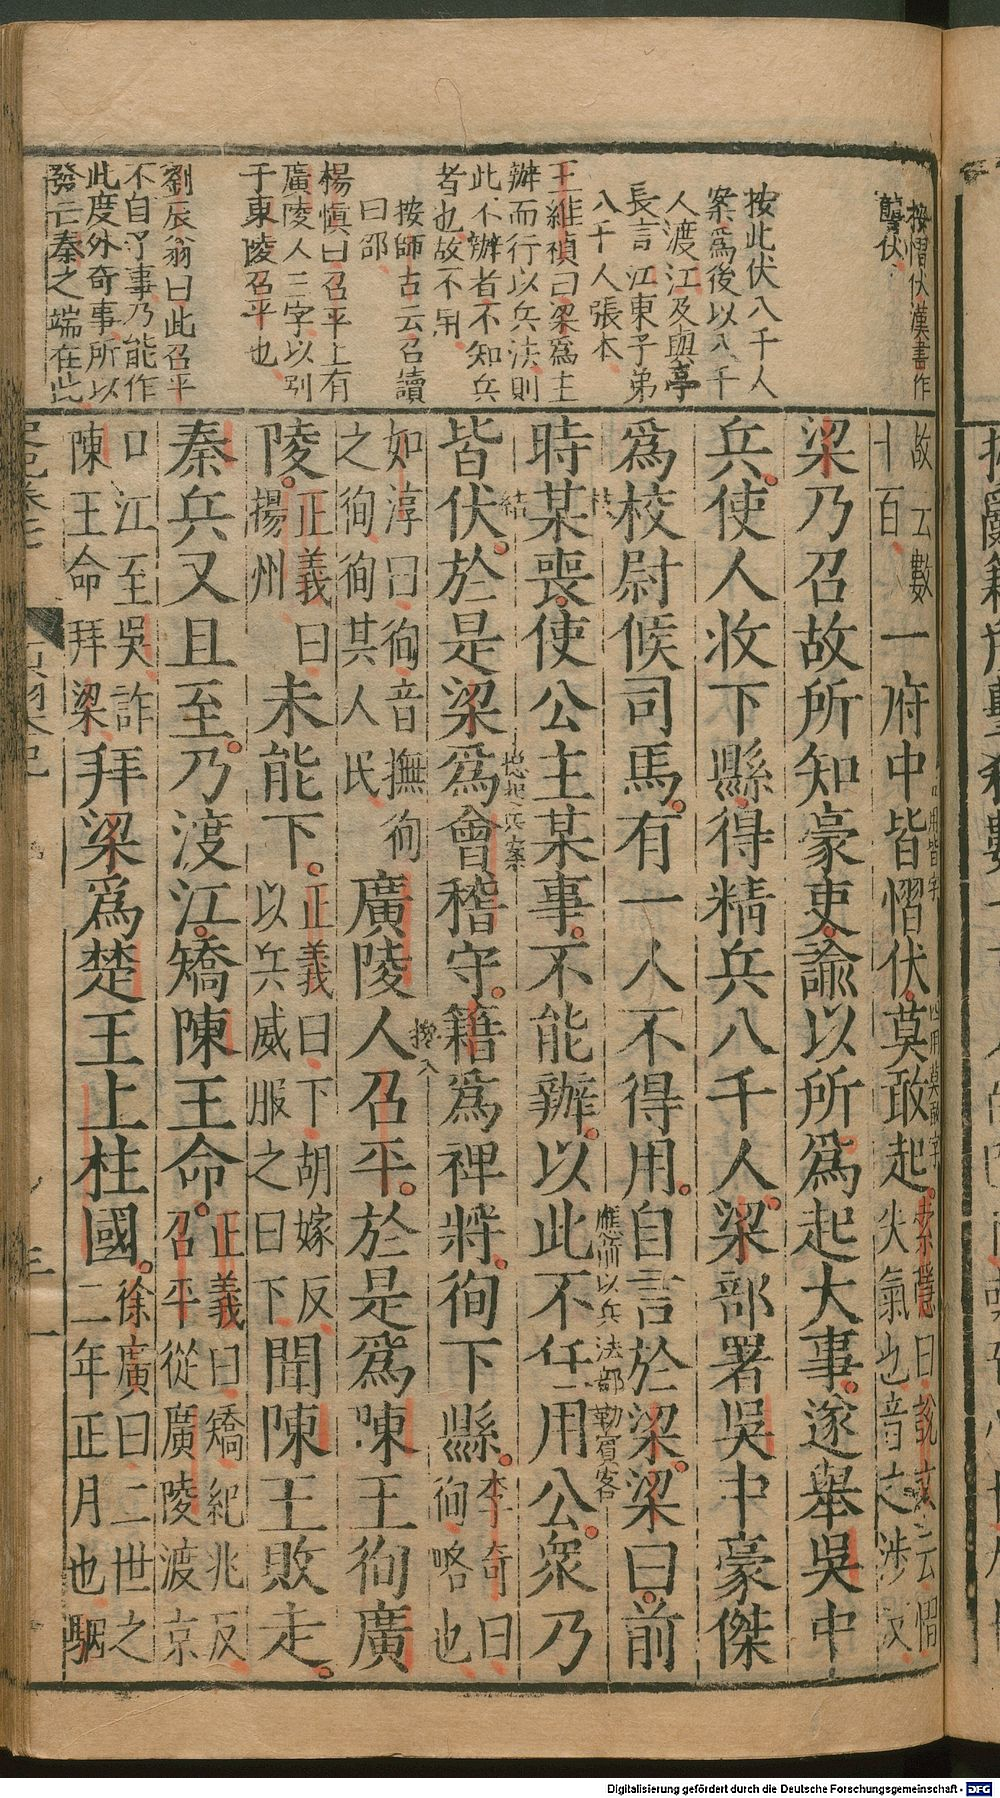 按慴伏漢書作
讋伏
按此伏八千人
案爲後以八千
人渡江及與亭
長言江東子弟
八千人張本
王維禎曰梁爲主
辦而行以兵法則
此不辦者不知兵
者也故不用
按師古云召讀
曰邵
楊愼曰召平上有
廣陵人三字以別
于東陵召平也
劉辰翁曰此召平
不自了事乃能作
此度外奇事所以
發亡秦之端在此
故云數
十百
一府中皆慴伏莫敢起
索隱曰說文云慴
失氣也音之涉反
用皆字
四用莫敢字
梁乃召故所知豪吏諭以所爲起大事遂舉吳中
兵使人收下縣得精兵八千人梁部署吳中豪傑
爲校尉候司馬有一人不得用自言於梁梁曰前
應前以兵法部勒賓客
時某喪使公主某事不能辦以此不任用公衆乃
結
皆伏於是梁爲會稽守籍爲裨將徇下縣
李奇曰
徇略也
如淳曰徇音撫徇
之徇徇其人民
廣陵人召平於是爲陳王徇廣
攙入
陵
正義曰
揚州
未能下
正義曰下胡嫁反
以兵威服之曰下
聞陳王敗走
秦兵又且至乃渡江矯陳王命
正義曰矯紀兆反
召平從廣陵渡京
口江至吳詐
陳王命拜梁
拜梁爲楚王上柱國
徐廣曰二世之
二年正月也駰
Digitalisierung gefördert durch die Deutsche Forschungsgemeinschaft - DFG